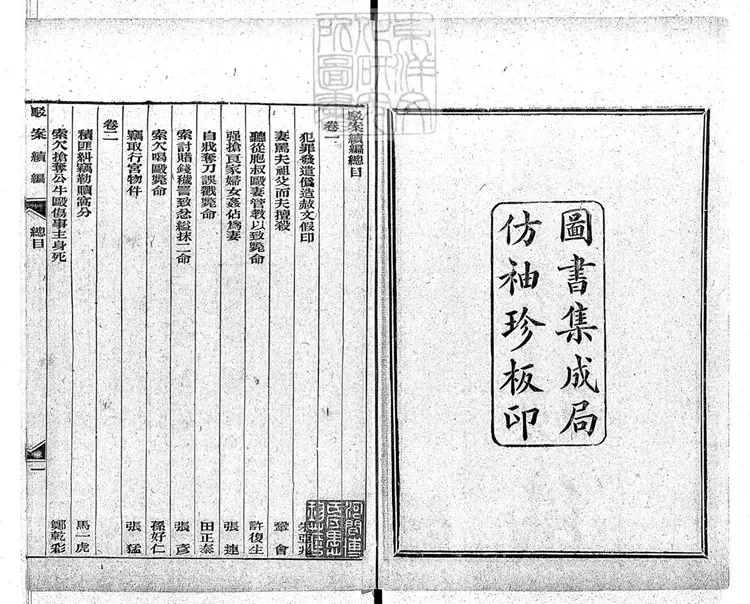 圖書集成局
仿袖珍板印
駁案續編總目
卷一
犯罪發遣僞造赦文假印
妻罵夫祖父而夫擅殺 鞏會
聽從胞叔毆妻管教以致斃命 許復生
强搶良家婦女姦佔爲妻 張連
自戕奪刀誤戳斃命 田正泰
索討賭錢穢詈致忿縊抹二命 張彥
索欠喝毆斃命 孫好仁
竊取行宮物件 張猛
卷二
積匪糾竊勒贖窩分 馬一虎
索欠搶奪公牛毆傷事主身死 鄭乾彩
駁案續編 總目 一